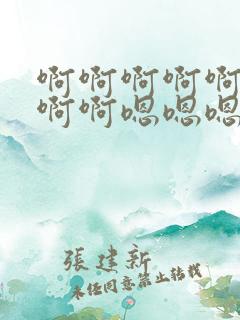 啊啊啊啊啊
啊啊嗯嗯嗯
張建新
未经同意禁止转载